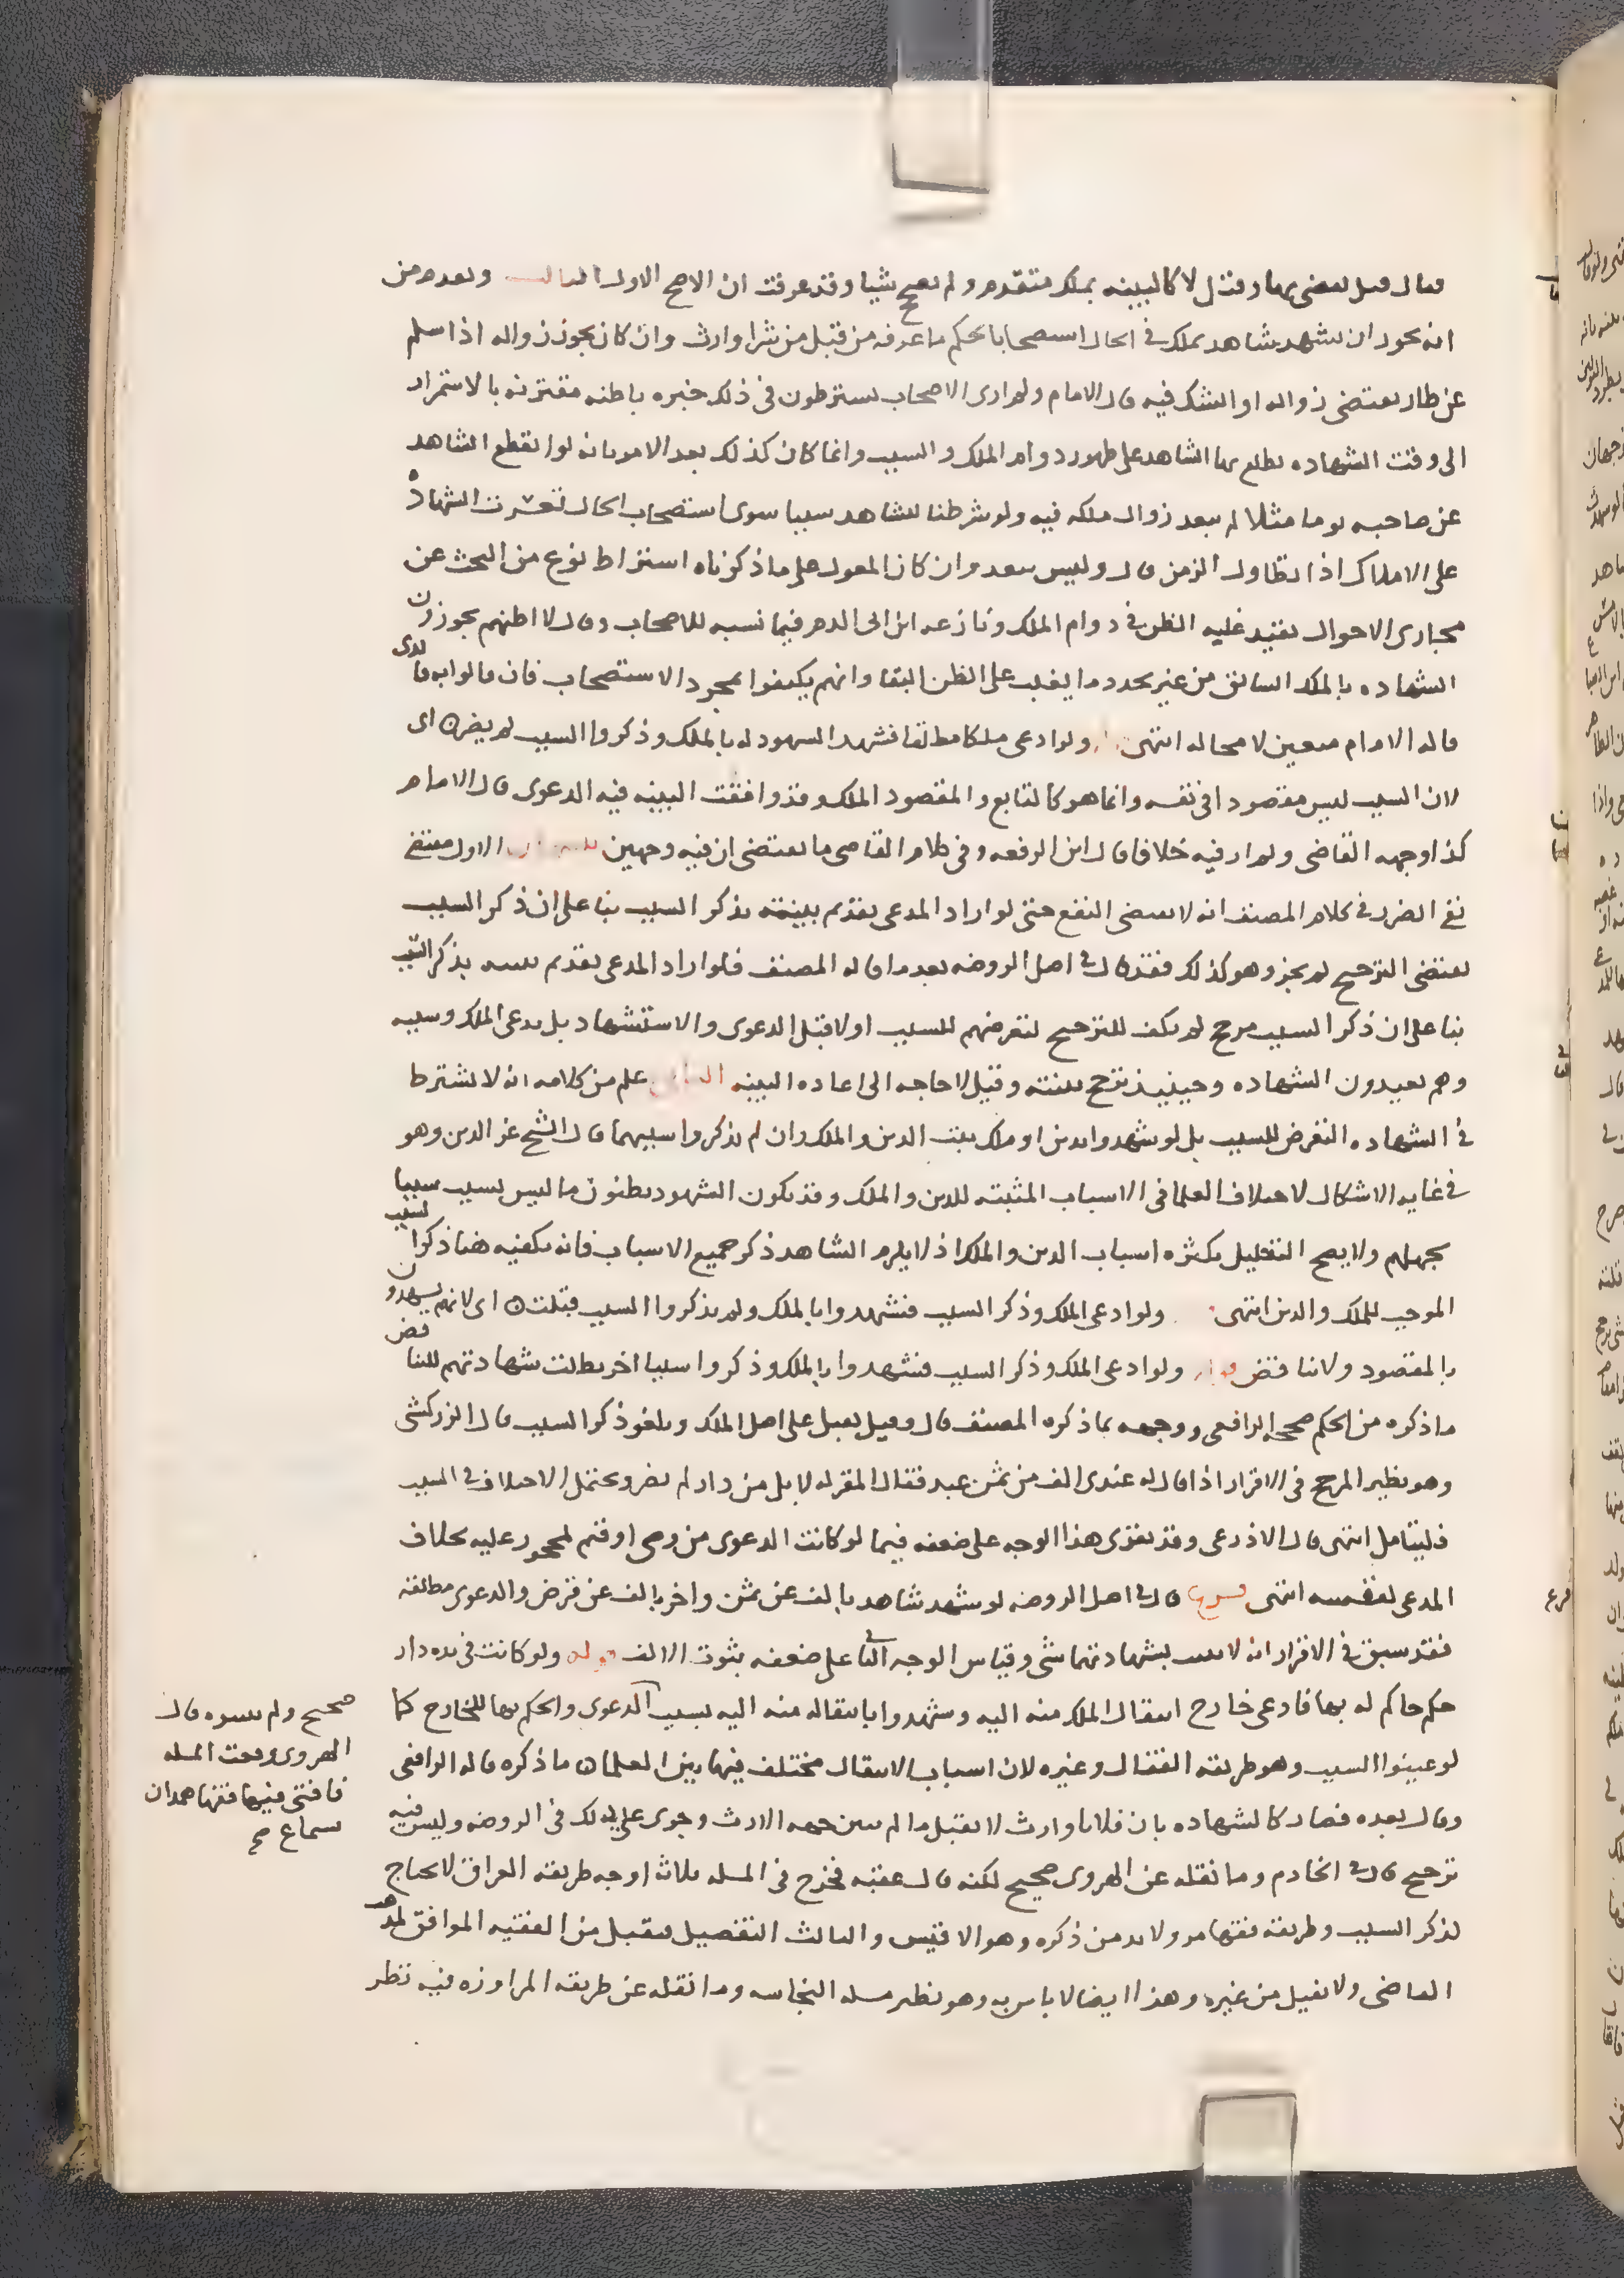 فقال قيل يقضى بها وقيل لا كالبينه بملك متقدم ولم يصحح شيا وقد عرفت ان الاصح الاول الثالث وبعدم من
انه يجوز ان يشهد شاهد بملك في الحال استصحابا بحكم ما عرفه من قبل من شرا وارث وان كان يجوز زواله اذا سلم
عن طار يقتضى زواله او الشك فيه قال الامام ولم ار الاصحاب يشترطون في ذلك خبره باطنه مقترنه بالاستمرار
الى وقت الشهاده يطلع بها الشاهد على ظهور دوام الملك والسبب وانما كان كذلك بعد الامر بانه لو انقطع الشاهد
عن صاحبه يوما مثلا لم يبعد زوال ملكه فيه ولو شرطنا للشاهد سببا سوى استصحاب الحال لتعسرت الشهاده
على الاملاك اذا تطاول الزمن قال وليس يبعد وان كان المعول على ما ذكرناه اشتراط نوع من البحث عن
مجارى الاحوال يفيد غلبه الظن في دوام الملك ونازعه ابن ابى الدم فيما نسبه للاصحاب وقال لا اظنهم يجوزون
الشهاده بالملك السابق من غير تجدد ما يغلب على الظن البقا وانهم يكتفوا بمجرد الاستصحاب فان قالوا به فالذى
قاله الامام متعين لا محاله انتهى ولو ادعى ملكا مطلقا فشهد الشهود له بالملك وذكروا السبب لم يضر ه اى
لان السبب ليس مقصودا في نفسه وانما هو كالتابع والمقصود الملك وقد وافقت البينه فيه الدعوى قال الامام
كذا وجهه القاضى ولم ار فيه خلافا قال ابن الرفعه وفى كلام القاضى ما يقتضى ان فيه وجهين تنبيهان الاول مقتضى
نفى الضرر في كلام المصنف انه لا يقتضى النفع حتى لو اراد المدعى تقديم بينته بذكر السبب بنا على ان ذكر السبب
يقتضى الترجيح لم يجز وهو كذلك فقد قال في اصل الروضه بعد ما قاله المصنف فلو اراد المدعى تقديم بينته بذكر السبب
بنا على ان ذكر السبب مرجح لم يكف للترجيح تعرضهم للسبب اولا قبل الدعوى والاستشهاد بل يدعى الملك وسببه
وهم يعيدون الشهاده وحينيذ ترجح بينته وقيل لا حاجه الى اعاده البينه الثانى علم من كلامه انه لا يشترط
في الشهاده التعرض للسبب بل لو شهدوا بدين او ملك يثبت الدين والملك وان لم يذكروا سببهما قال الشيخ عز الدين وهو
في غايه الاشكال لاختلاف العلما في الاسباب المثبته للدين والملك وقد يكون الشهود يظنون ما ليس بسبب سببا
بجهلهم ولا يصح التعليل بكثره اسباب الدين والملك اذ لا يلزم الشاهد ذكر جميع الاسباب فانه يكفيه هنا ذكر السبب
الموجب للملك والدين انتهى ولو ادعى الملك وذكر السبب فشهدوا بالملك ولم يذكروا السبب قبلت ه اى لانهم يشهدون
بالمقصود ولا تناقض قوله ولو ادعى الملك وذكر السبب فشهدوا بالملك وذكروا سببا اخر بطلت شهادتهم للتناقض
ما ذكره من الحكم صححه الرافعى ووجهه بما ذكره المصنف قال وقيل يقبل على اصل الملك ويلغو ذكر السبب قال الزركشى
وهو نظير المرجح في الاقرار اذا قال له عندى الف من ثمن عبد فقال المقر له لا بل من دار لم يضر ويحتمل الاختلاف في السبب
فليتامل انتهى قال الاذرعى وقد يقوى هذا الوجه على ضعفه فيما لو كانت الدعوى من وصى او قيم لمحجور عليه بخلاف
المدعى لنفسه انتهى فرع قال في اصل الروضه لو شهد شاهد بالف عن ثمن واخر بالف عن قرض والدعوى مطلقه
فقد سبق في الاقرار انه لا يثبت بشهادتهما شى وقياس الوجه الثانى على ضعفه ثبوت الالف قوله ولو كانت في يده دار
حكم حاكم له بها فادعى خارج انتقال الملك منه اليه وشهدوا بانتقاله منه اليه بسبب الدعوى والحكم بها للخارج كما
لو عينوا السبب وهو طريقه القفال وغيره لان اسباب الانتقال مختلف فيها بين العلما ه ما ذكره قاله الرافعى
وقال بعده فصار كالشهاده بان فلانا وارث لا تقبل ما لم يبين جهه الارث وجرى على ذلك في الروضه وليس فيه
ترجيح قال في الخادم وما نقله عن الهروى صحيح لكنه قال عقبه فخرج في المسله ثلاثه اوجه طريقه العراق لا يحتاج
لذكر السبب وطريقه فقها مرو لا بد من ذكره وهو الاقيس والثالث التفصيل فيقبل من الفقيه الموافق لمذهب
القاضى ولا يقبل من غيره وهذا ايضا لا باس به وهو نظير مسله النجاسه وما نقله عن طريقه المراوزه فيه نظر
صحيح ولم يبينوه قال
الهروى وقعت المسله
فافتى فيها فقها همدان
سماع صح
فرع